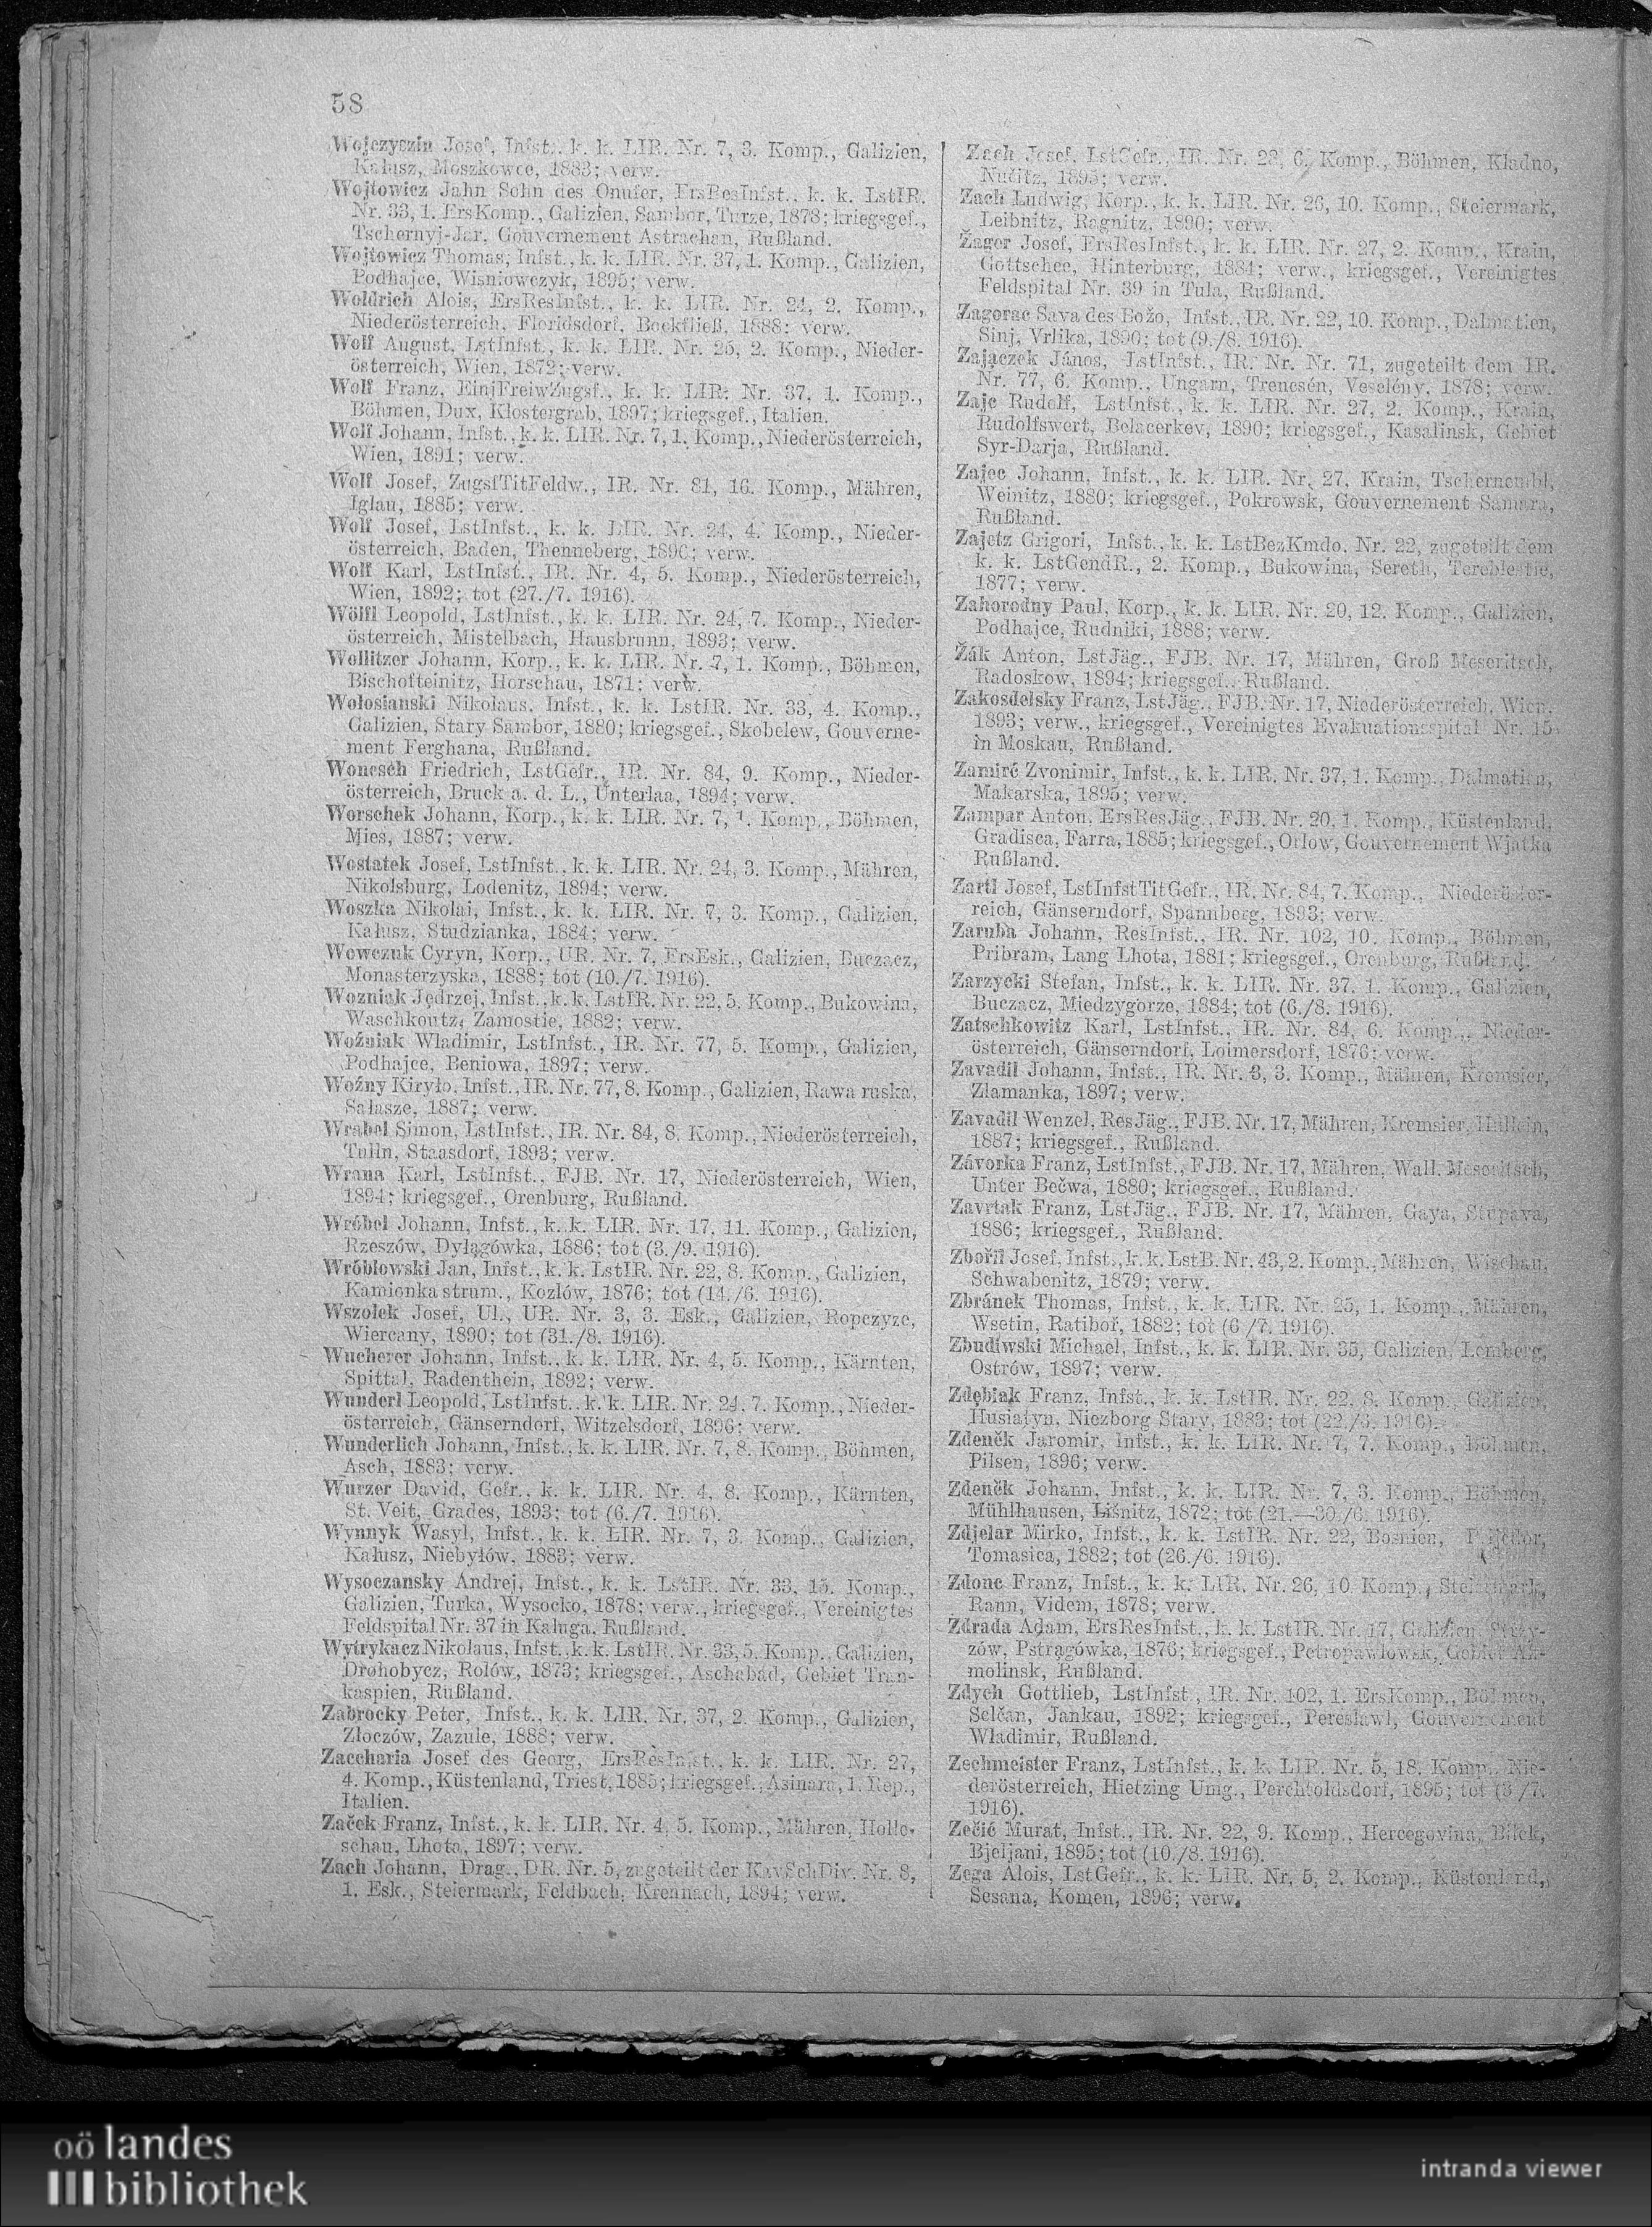 58
Wojczyszin Josef, Infst., k. k. LIR. Nr. 7, 3. Komp., Galizien,
Kałusz, Moszkowce, 1883; verw.
Wojtowicz Jahn Sohn des Onufer, ErsResInfst., k. k. LstIR.
Nr. 33, 1. ErsKomp., Galizien, Sambor, Turze, 1878; kriegsgef.,
Tschernyj-Jar, Gouvernement Astrachan, Rußland.
Wojtowicz Thomas, Infst., k. k. LIR. Nr. 37, 1. Komp., Galizien,
Podhajce, Wisniowczyk, 1895; verw.
Woldrich Alois, ErsResInfst., k. k. LIR. Nr. 24, 2. Komp.,
Niederösterreich, Floridsdorf, Bockfließ, 1888; verw.
Wolf August, LstInfst., k. k. LIR. Nr. 25, 2. Komp., Nieder-
österreich, Wien, 1872; verw.
Wolf Franz, EinjFreiwZugsf., k. k. LIR. Nr. 37, 1. Komp.,
Böhmen, Dux, Klostergrab, 1897; kriegsgef., Italien.
Wolf Johann, Infst., k. k. LIR. Nr. 7, 1. Komp., Niederösterreich,
Wien, 1891; verw.
Wolf Josef, ZugsfTitFeldw., IR. Nr. 81, 16. Komp., Mähren,
Iglau, 1885; verw.
Wolf Josef, LstInfst., k. k. LIR. Nr. 24, 4. Komp., Nieder-
österreich, Baden, Thenneberg, 1896; verw.
Wolf Karl, LstInfst., IR. Nr. 4, 5. Komp., Niederösterreich,
Wien, 1892; tot (27./7. 1916).
Wölfl Leopold, LstInfst., k. k. LIR. Nr. 24, 7. Komp., Nieder-
österreich, Mistelbach, Hausbrunn, 1893; verw.
Wollitzer Johann, Korp., k. k. LIR. Nr. 7, 1. Komp., Böhmen,
Bischofteinitz, Horschau, 1871; verw.
Wołosianski Nikolaus, Infst., k. k. LstIR. Nr. 33, 4. Komp.,
Galizien, Stary Sambor, 1880; kriegsgef., Skobelew, Gouverne-
ment Ferghana, Rußland.
Wonesch Friedrich, LstGefr., IR. Nr. 84, 9. Komp., Nieder-
österreich, Bruck a. d. L., Unterlaa, 1894; verw.
Worschek Johann, Korp., k. k. LIR. Nr. 7, 1. Komp., Böhmen,
Mies, 1887; verw.
Wostatek Josef, LstInfst., k. k. LIR. Nr. 24, 3. Komp., Mähren,
Nikolsburg, Lodenitz, 1894; verw.
Woszka Nikolai, Infst., k. k. LIR. Nr. 7, 3. Komp., Galizien,
Kałusz, Studzianka, 1884; verw.
Wowczuk Cyryn, Korp., UR. Nr. 7, ErsEsk., Galizien, Buczacz,
Monasterzyska, 1888; tot (10./7. 1916).
Wozniak Jędrzej, Infst., k. k. LstIR. Nr. 22, 5. Komp., Bukowina,
Waschkoutz, Zamostie, 1882; verw.
Woźniak Wladimir, LstInfst., IR. Nr. 77, 5. Komp., Galizien,
Podhajce, Beniowa, 1897; verw.
Woźny Kiryło, Infst., IR. Nr. 77, 8. Komp., Galizien, Rawa ruska,
Sałasze, 1887; verw.
Wrabel Simon, LstInfst., IR. Nr. 84, 8. Komp., Niederösterreich,
Tulln, Staasdorf, 1893; verw.
Wrana Karl, LstInfst., FJB. Nr. 17, Niederösterreich, Wien,
1894; kriegsgef., Orenburg, Rußland.
Wróbel Johann, Infst., k. k. LIR. Nr. 17, 11. Komp., Galizien,
Rzeszów, Dylągówka, 1886; tot (3./9. 1916).
Wróblowski Jan, Infst., k. k. LstIR. Nr. 22, 8. Komp., Galizien,
Kamionka strum., Kozlów, 1876; tot (14./6. 1916).
Wszolek Josef, Ul., UR. Nr. 3, 3. Esk., Galizien, Ropczyze,
Wiercany, 1890; tot (31./8. 1916).
Wucherer Johann, Infst., k. k. LIR. Nr. 4, 5. Komp., Kärnten,
Spittal, Radenthein, 1892; verw.
Wunderl Leopold, LstInfst., k. k. LIR. Nr. 24, 7. Komp., Nieder-
österreich, Gänserndorf, Witzelsdorf, 1896; verw.
Wunderlich Johann, Infst., k. k. LIR. Nr. 7, 8. Komp., Böhmen,
Asch, 1883; verw.
Wurzer David, Gefr., k. k. LIR. Nr. 4, 8. Komp., Kärnten,
St. Veit, Grades, 1893; tot (6./7. 1916).
Wynnyk Wasyl, Infst., k. k. LIR. Nr. 7, 3. Komp., Galizien,
Kałusz, Niebyłów, 1883; verw.
Wysoczansky Andrej, Infst., k. k. LstIR. Nr. 33, 15. Komp.,
Galizien, Turka, Wysocko, 1878; verw., kriegsgef., Vereinigtes
Feldspital Nr. 37 in Kaluga, Rußland.
Wytrykacz Nikolaus, Infst., k. k. LstIR. Nr. 33, 5. Komp., Galizien,
Drohobycz, Rolów, 1873; kriegsgef., Aschabad, Gebiet Tran-
kaspien, Rußland.
Zabrocky Peter, Infst., k. k. LIR. Nr. 37, 2. Komp., Galizien,
Złoczów, Zazule, 1888; verw.
Zaccharia Josef des Georg, ErsResInfst., k. k. LIR. Nr. 27,
4. Komp., Küstenland, Triest, 1885; kriegsgef., Asinara, 1. Rep.,
Italien.
Začek Franz, Infst., k. k. LIR. Nr. 4, 5. Komp., Mähren, Holle-
schau, Lhota, 1897; verw.
Zach Johann, Drag., DR. Nr. 5, zugeteilt der KavSchDiv. Nr. 8,
1. Esk., Steiermark, Feldbach, Krennach, 1894; verw.
Zach Josef, LstGefr., IR. Nr. 28, 6. Komp., Böhmen, Kladno,
Nučitz, 1895; verw.
Zach Ludwig, Korp., k. k. LIR. Nr. 26, 10. Komp., Steiermark,
Leibnitz, Ragnitz, 1890; verw.
Žager Josef, ErsResInfst., k. k. LIR. Nr. 27, 2. Komp., Krain,
Gottschee, Hinterburg, 1884; verw., kriegsgef., Vereinigtes
Feldspital Nr. 39 in Tula, Rußland.
Zagorac Sava des Božo, Infst., IR. Nr. 22, 10. Komp., Dalmatien,
Sinj, Vrlika, 1890; tot (9./8. 1916).
Zajączek János, LstInfst., IR. Nr. Nr. 71, zugeteilt dem IR.
Nr. 77, 6. Komp., Ungarn, Trencsén, Veselény, 1878; verw.
Zajc Rudolf, LstInfst., k. k. LIR. Nr. 27, 2. Komp., Krain,
Rudolfswert, Belacerkev, 1890; kriegsgef., Kasalinsk, Gebiet
Syr-Darja, Rußland.
Zajec Johann, Infst., k. k. LIR. Nr. 27, Krain, Tschernembl,
Weinitz, 1880; kriegsgef., Pokrowsk, Gouvernement Samara,
Rußland.
Zajetz Grigori, Infst., k. k. LstBezKmdo. Nr. 22, zugeteilt dem
k. k. LstGendR., 2. Komp., Bukowina, Sereth, Tereblestie,
1877; verw.
Zahorodny Paul, Korp., k. k. LIR. Nr. 20, 12. Komp., Galizien,
Podhajce, Rudniki, 1888; verw.
Žák Anton, LstJäg., FJB. Nr. 17, Mähren, Groß Meseritsch,
Radoskow, 1894; kriegsgef., Rußland.
Zakosdelsky Franz, LstJäg., FJB. Nr. 17, Niederösterreich, Wien,
1893; verw., kriegsgef., Vereinigtes Evakuationsspital Nr. 15
in Moskau, Rußland.
Zamiré Zvonimir, Infst., k. k. LIR. Nr. 37, 1. Komp., Dalmatien,
Makarska, 1895; verw.
Zampar Anton, ErsResJäg., FJB. Nr. 20, 1. Komp., Küstenland,
Gradisca, Farra, 1885; kriegsgef., Orlow, Gouvernement Wjatka
Rußland.
Zartl Josef, LstInfstTitGefr., IR. Nr. 84, 7. Komp., Niederöster-
reich, Gänserndorf, Spannberg, 1893; verw.
Zaruba Johann, ResInfst., IR. Nr. 102, 10. Komp., Böhmen,
Pribram, Lang Lhota, 1881; kriegsgef., Orenburg, Rußland.
Zarzycki Stefan, Infst., k. k. LIR. Nr. 37, 1. Komp., Galizien,
Buczacz, Miedzygorze, 1884; tot (6./8. 1916).
Zatschkowitz Karl, LstInfst., IR. Nr. 84, 6. Komp., Nieder-
österreich, Gänserndorf, Loimersdorf, 1876; verw.
Zavadil Johann, Infst., IR. Nr. 3, 3. Komp., Mähren, Kremsier,
Zlamanka, 1897; verw.
Zavadil Wenzel, ResJäg., FJB. Nr. 17, Mähren, Kremsier, Hullein,
1887; kriegsgef., Rußland.
Závorka Franz, LstInfst., FJB. Nr. 17, Mähren, Wall. Meseritsch,
Unter Bečwa, 1880; kriegsgef., Rußland.
Zavrtak Franz, LstJäg., FJB. Nr. 17, Mähren, Gaya, Stupava,
1886; kriegsgef., Rußland.
Zbořil Josef, Infst., k. k. LstB. Nr. 43, 2. Komp., Mähren, Wischau,
Schwabenitz, 1879; verw.
Zbránek Thomas, Infst., k. k. LIR. Nr. 25, 1. Komp., Mähren,
Wsetin, Ratiboř, 1882; tot (6./7. 1916).
Zbudiwski Michael, Infst., k. k. LIR. Nr. 35, Galizien, Lemberg,
Ostrów, 1897; verw.
Zdębiak Franz, Infst., k. k. LstIR. Nr. 22, 8. Komp., Galizien,
Husiatyn, Niezborg Stary, 1883; tot (22./6. 1916).
Zdeněk Jaromir, Infst., k. k. LIR. Nr. 7, 7. Komp., Böhmen,
Pilsen, 1896; verw.
Zdeněk Johann, Infst., k. k. LIR. Nr. 7, 3. Komp., Böhmen,
Mühlhausen, Lišnitz, 1872; tot (21.—30./6. 1916).
Zdjelar Mirko, Infst., k. k. LstIR. Nr. 22, Bosnien, Prijedor,
Tomasica, 1882; tot (26./6. 1916).
Zdonc Franz, Infst., k. k. LIR. Nr. 26, 10. Komp., Steiermark,
Rann, Videm, 1878; verw.
Zdrada Adam, ErsResInfst., k. k. LstIR. Nr. 17, Galizien, Strzy-
zów, Pstrągówka, 1876; kriegsgef., Petropawlowsk, Gebiet Ak-
molinsk, Rußland.
Zdych Gottlieb, LstInfst., IR. Nr. 102, 1. ErsKomp., Böhmen,
Selčan, Jankau, 1892; kriegsgef., Pereslawl, Gouvernement
Wladimir, Rußland.
Zechmeister Franz, LstInfst., k. k. LIR. Nr. 5, 18. Komp., Nie-
derösterreich, Hietzing Umg., Perchtoldsdorf, 1895; tot (3./7.
1916).
Zečić Murat, Infst., IR. Nr. 22, 9. Komp., Hercegovina, Bilek,
Bjeljani, 1895; tot (10./8. 1916).
Zega Alois, LstGefr., k. k. LIR. Nr. 5, 2. Komp., Küstenland,
Sesana, Komen, 1896; verw.
oö landes
bibliothek
intranda viewer